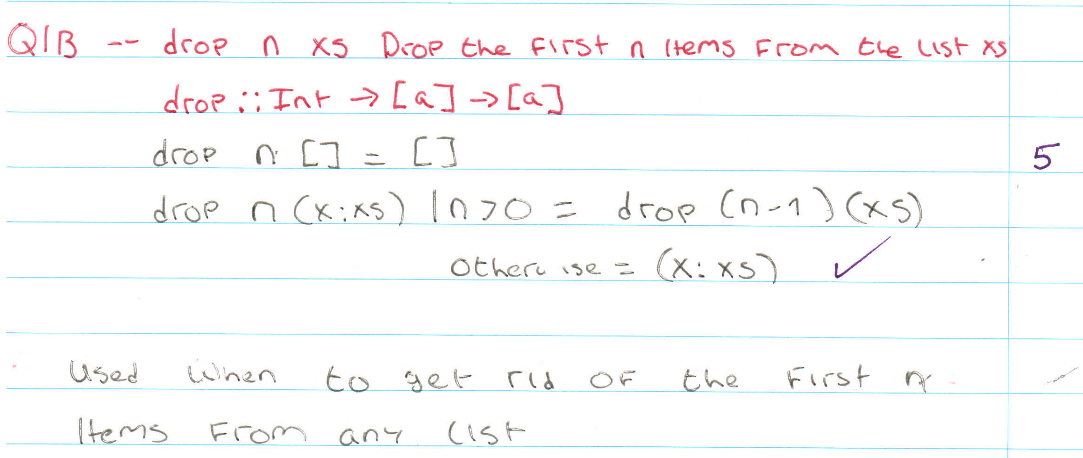 Q1B -- drop n xs Drop the first n items from the list xs
drop :: Int -> [a] -> [a]
drop n [] = []
5
drop n (x:xs) | n>0 = drop (n-1) (xs)
otherwise = (x:xs) ✓
Used when to get rid of the first n
items from any list